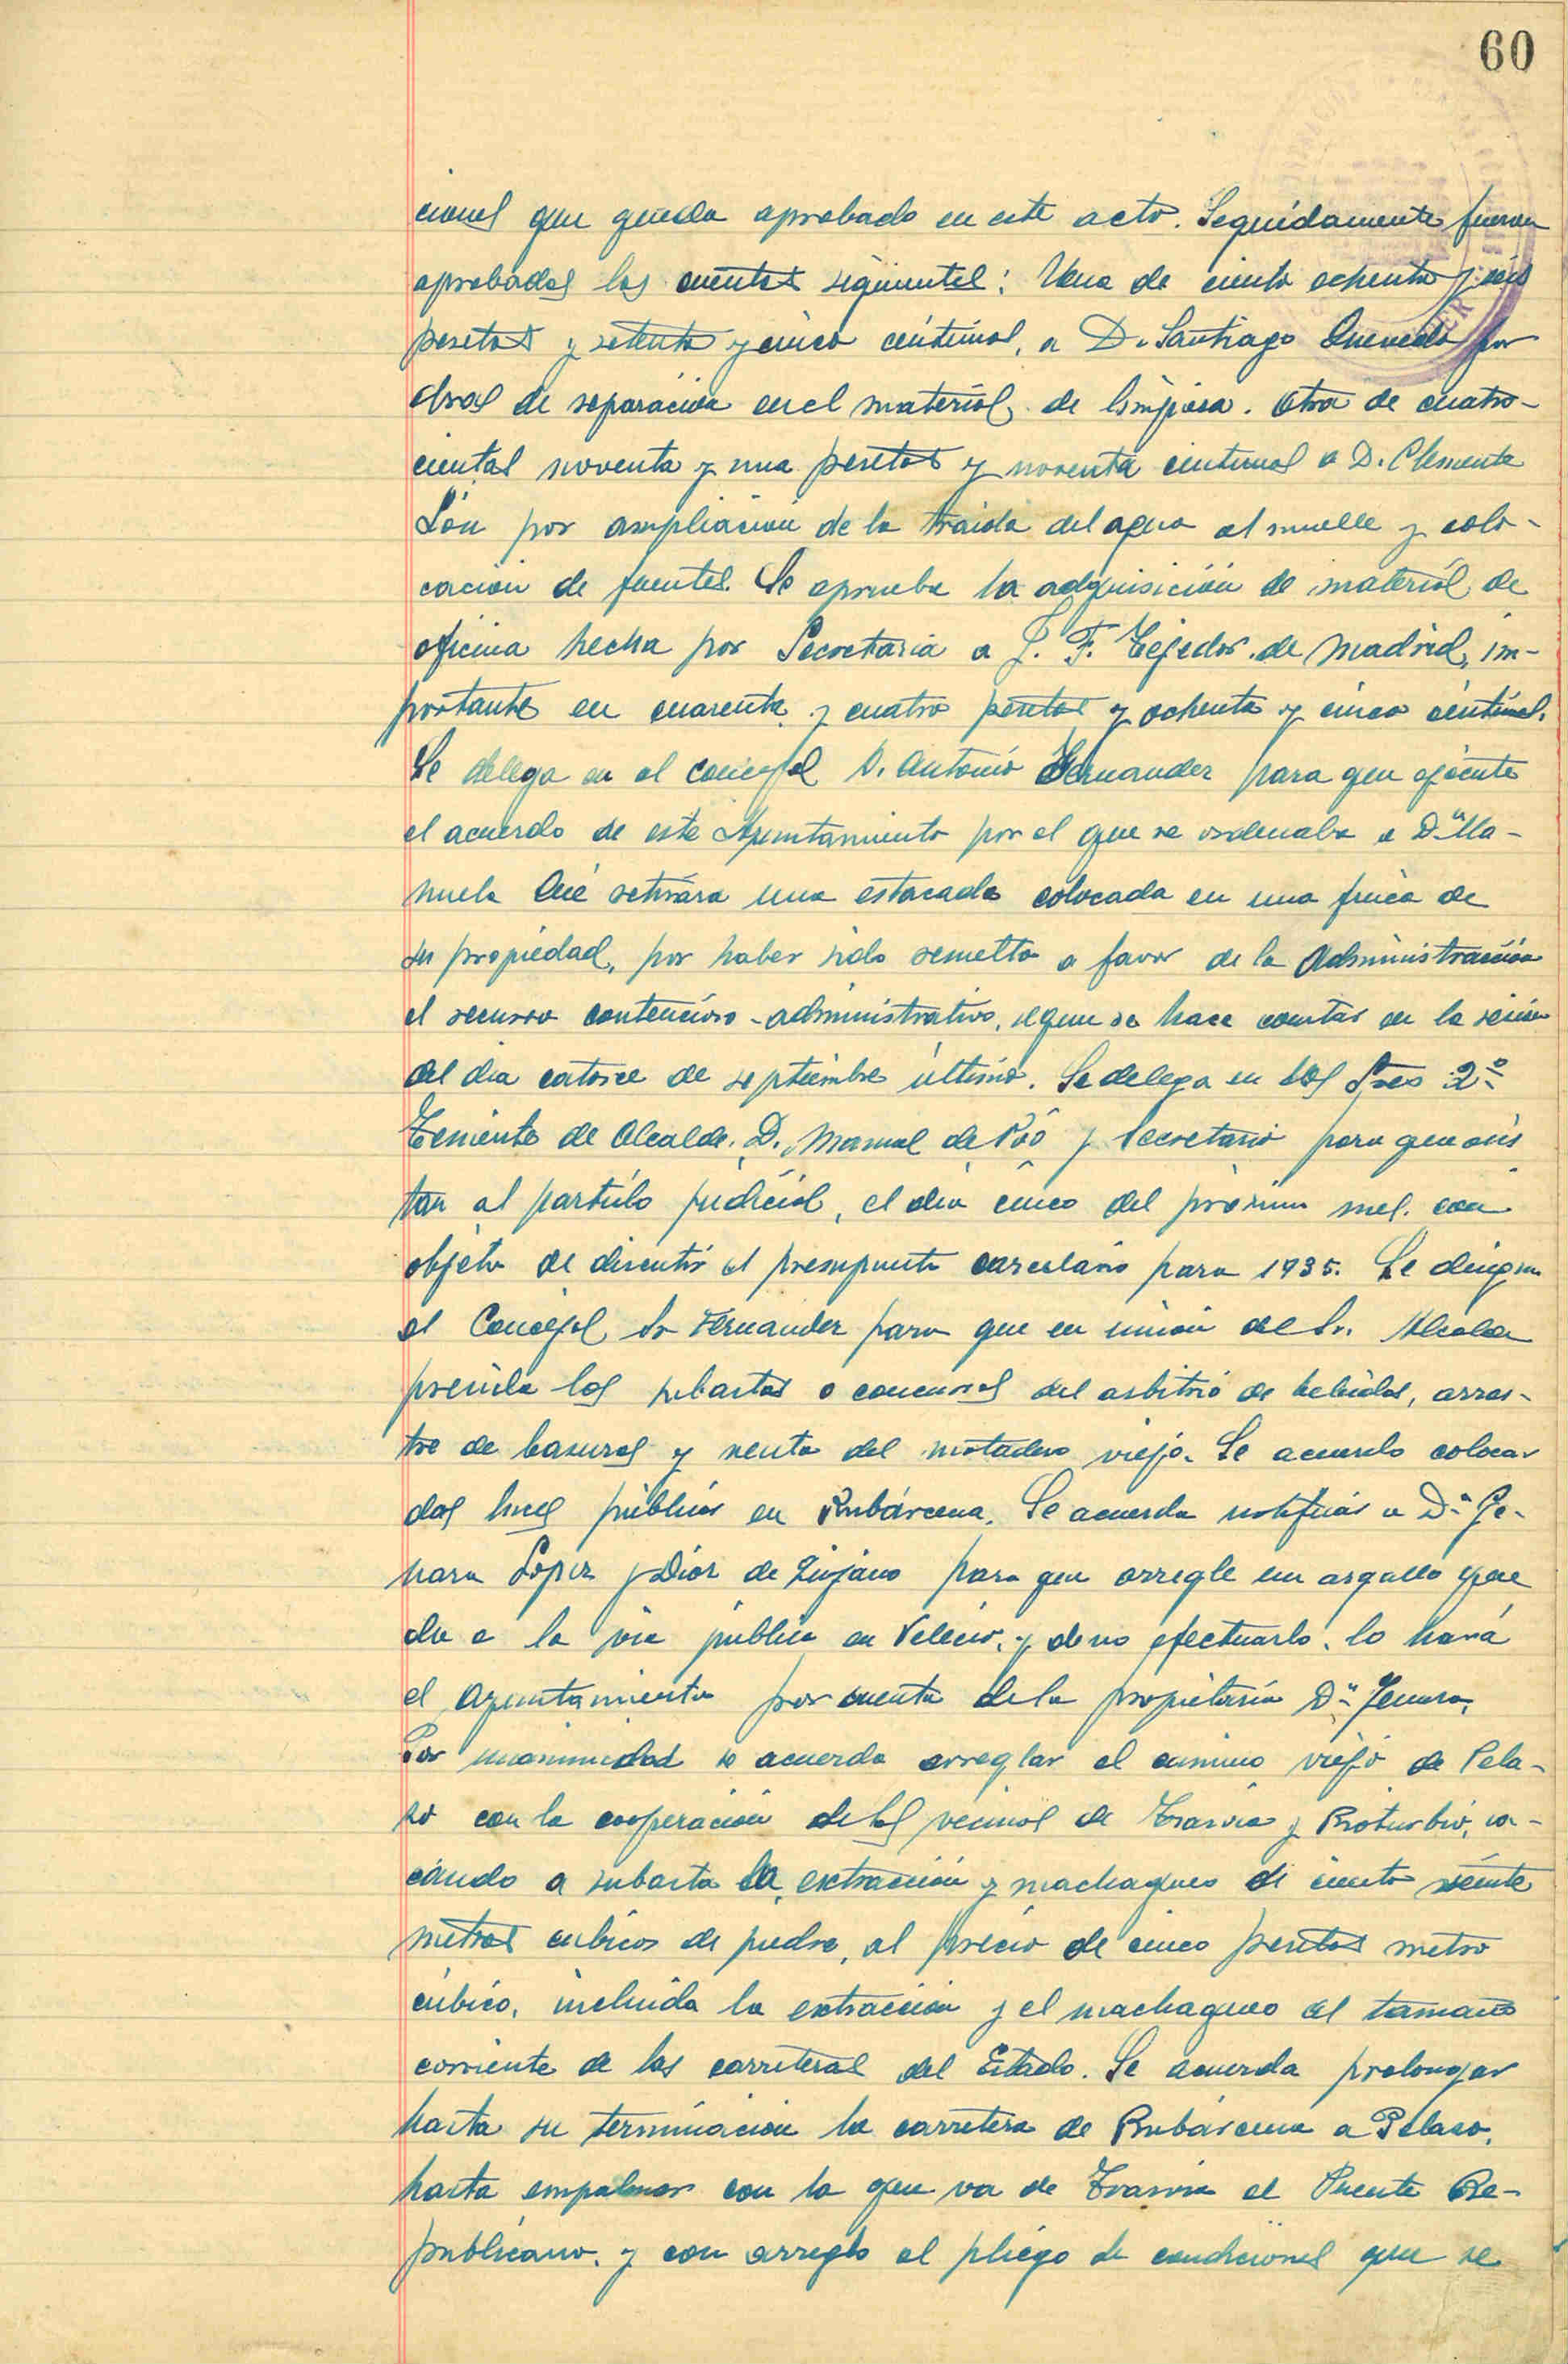 60
cionel que queda aprobado en este acto. Seguidamente fueron
aprobadas las cuentas siguientes: Una de ciento ochenta y seis
pesetas y setenta y cinco céntimos, a D. Santiago Quevedo por
obras de reparación en el material de limpieza. Otra de cuatro-
cientas noventa y una pesetas y noventa centimos a D. Clemente
Lón por ampliación de la traida del agua al muelle y colo-
cación de fuentes. Se aprueba la adquisición de material de
oficina hecha por Secretaria a J. F. Tejedor de Madrid, im-
portante en cuarenta y cuatro pesetas y ochenta y cinco céntimos.
Se delega en el concejal D. Antonio Fernandez para que ejecute
el acuerdo de este Ayuntamiento por el que se ordenaba a Dª Ma-
nuela Cué retirára una estacada colocada en una finca de
su propiedad, por haber sido resuelto a favor de la Administración
el recurso contencioso-administrativo, segun se hace constar en la sesión
del dia catorce de septiembre último. Se delega en los Sres 2º
Teniente de Alcalde, D. Manuel de Póo y Secretario para que asis
tan al partido judicial, el dia cinco del próximo mes, con
objeto de discutir el presupuesto carcelario para 1935. Se designa
al Concejal Sr Fernandez para que en unión del Sr. Alcalde
presida las subastas o concursos del arbitrio de bebidas, arras-
tre de basuras y venta del matadero viejo. Se acuerda colocar
dos luces públicas en Rubárcena. Se acuerda notificar a Dª Ge-
nara Lopez y Dior de Quijano para que arregle un argallo que
da a la via pública en Vellecio, y de no efectuarlo, lo hará
el Ayuntamiento por cuenta de la propietaria Dª Genara.
Por unanimidad se acuerda arreglar el camino viejo de Pela-
zo con la cooperación de los vecinos de Trasvia y Rioturbio, sa-
cando a subasta la extracción y machaqueo de ciento veinte
metros cubicos de piedra, al precio de cinco pesetas metro
cúbico, incluida la extracción y el machaqueo al tamaño
corriente de las carreteras del Estado. Se acuerda prolongar
hasta su terminación la carretera de Rubárcena a Pelazo,
hasta empalmar con la que va de Trasvia al Puente Re-
publicano, y con arreglo al pliego de condiciones que se